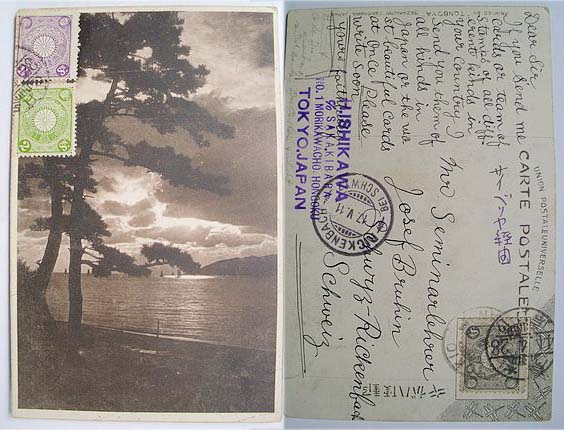 Dear Sir.
If you send me
cards or team of
Stamps of all diff
erent kinds in
your country I
Send you them of
all kinds in
Japan or the mo
st beautiful Cards
at Once Please
write soon
yours faith
H.ISHIKAWA
% SAKAKIBARA
NO.1 MORIKAWACHO, HONGO
TOKYO.JAPAN
UNION POSTALE UNIVERSELLE
CARTE POSTALE
Mr Seminarlehrer
Josef Bruhin
Schwyz-Rickenbach
Schweiz
RICKENBACH
BEI SCHWYZ
17.V.11